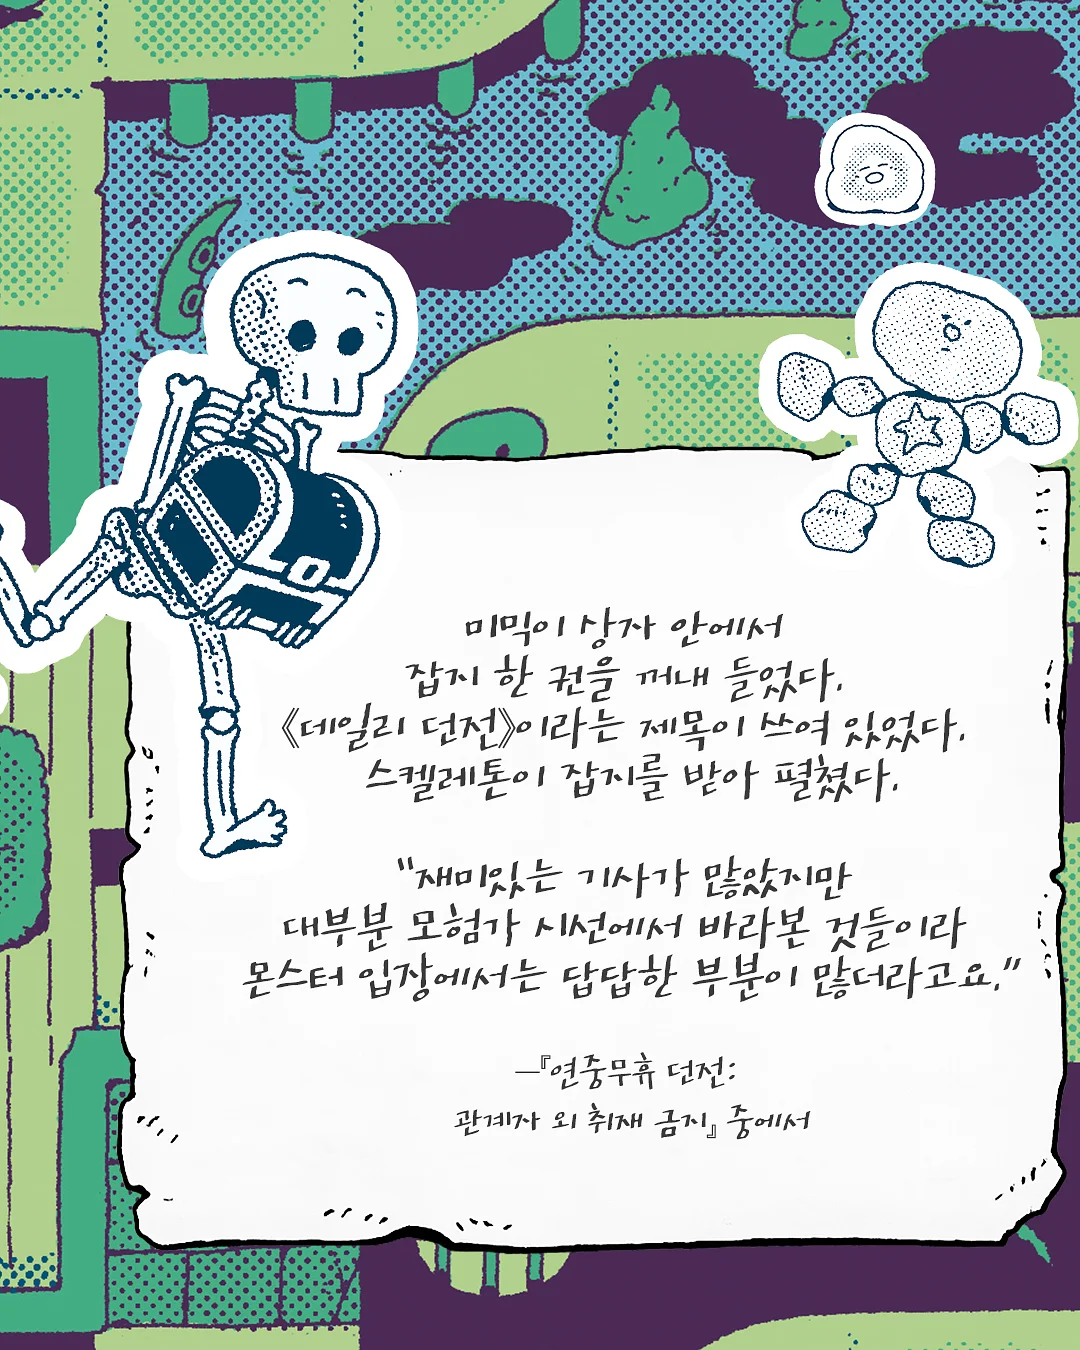 미믹이 상자 안에서
잡지 한 권을 꺼내 들었다.
《데일리 던전》이라는 제목이 쓰여 있었다.
스켈레톤이 잡지를 받아 펼쳤다.
"재미있는 기사가 많았지만
대부분 모험가 시선에서 바라본 것들이라
몬스터 입장에서는 답답한 부분이 많더라고요."
─『연중무휴 던전:
관계자 외 취재 금지』 중에서